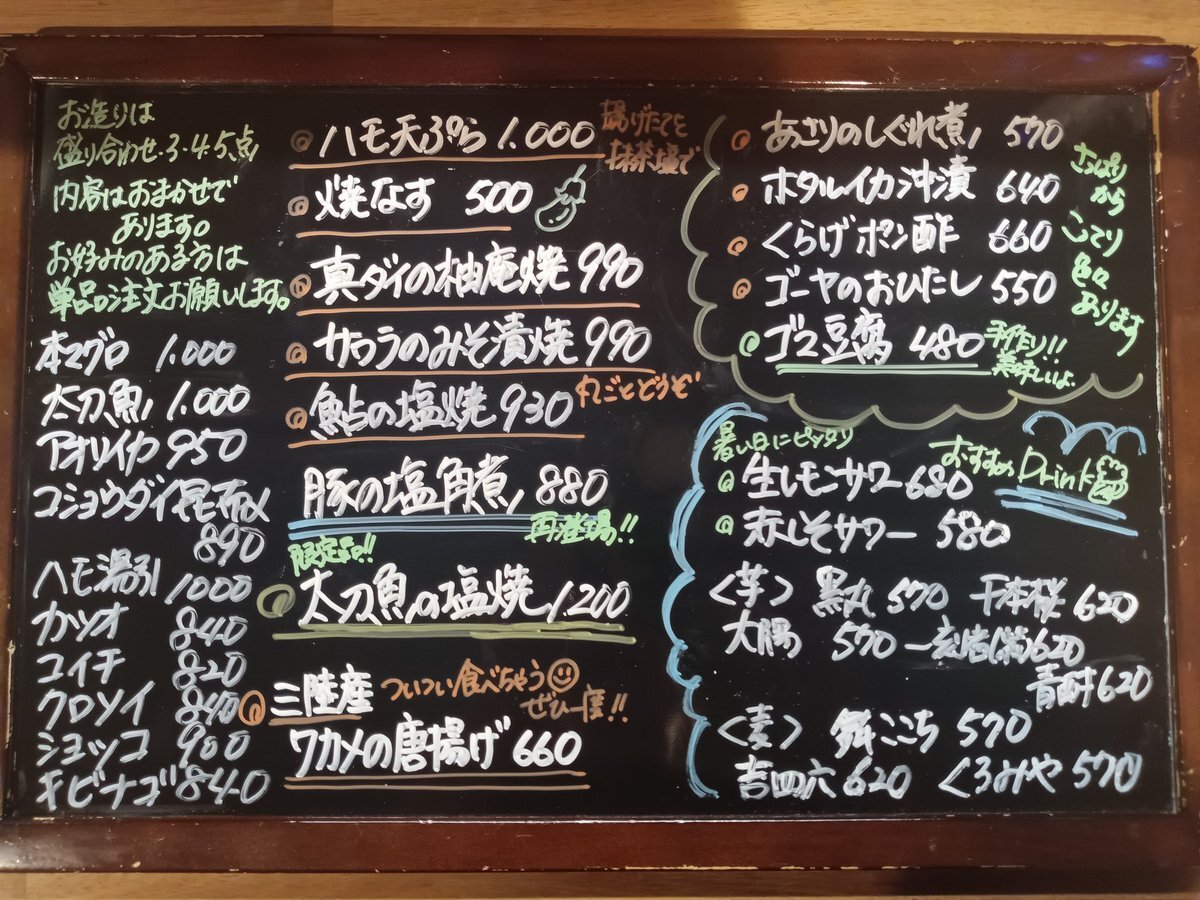 お造りは
盛り合わせ・3・4・5点
内容はおまかせで
あります。
お好みのある方は
単品の注文お願いします。
本マグロ 1.000
太刀魚 1.000
アオリイカ 950
コショウダイ昆布〆
890
ハモ湯引 1000
カツオ 840
コイチ 820
クロソイ 840
ショッコ 900
キビナゴ 840
ハモ天ぷら 1.000
揚げたてを
抹茶塩で
焼なす 500
真ダイの柚庵焼 990
サワラのみそ漬焼 990
鮎の塩焼 930
丸ごとどうぞ
豚の塩角煮 880
再登場!!
限定品!!
太刀魚の塩焼 1200
三陸産
ついつい食べちゃう
ぜひ一度!!
ワカメの唐揚げ 660
あさりのしぐれ煮 570
ホタルイカ沖漬 640
くらげポン酢 660
ゴーヤのおひたし 550
ゴマ豆腐 480
手作り!!
美味しいよ
さっぱり
から
こってり
色々
あります
暑い日にピッタリ
おすすめ Drink
生レモンサワー 680
赤しそサワー 580
<芋> 黒丸 570 千本桜 620
大隅 570 一刻者(紫)620
青酎 620
<麦> 舞ここち 570
吉四六 620 くろみや 570